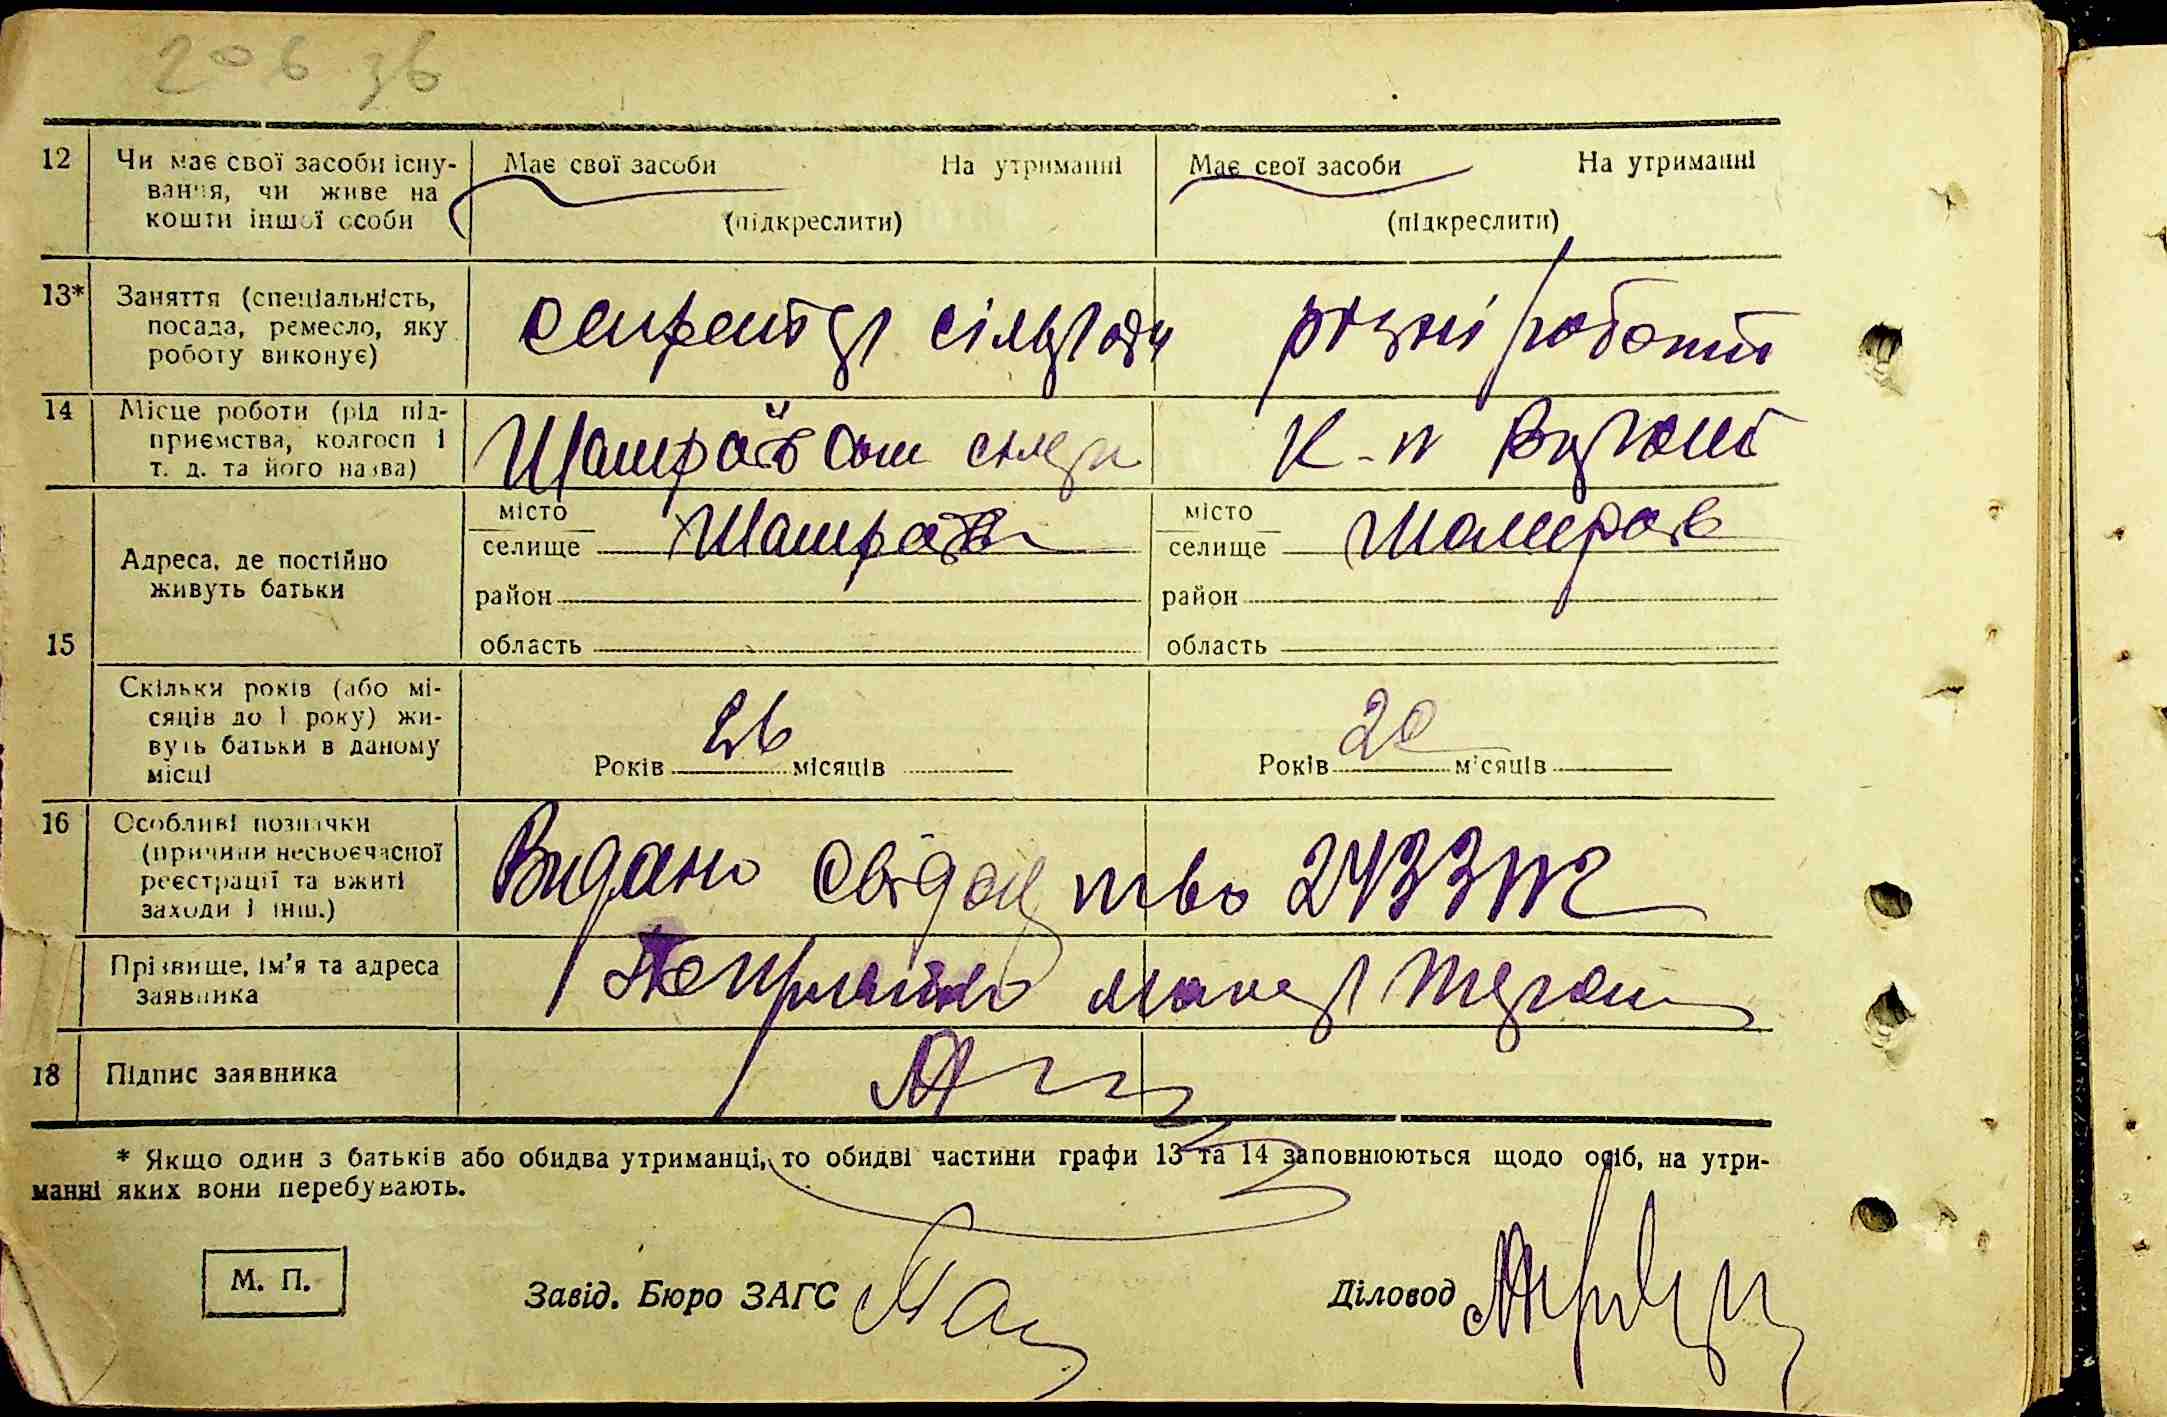 206 36
12 Чи має свої засоби існу- Має свої засоби На утриманні Має свої засоби На утриманні
вання, чи живе на
кошти іншої особи (підкреслити) (підкреслити)
13* Заняття (спеціальність,
посада, ремесло, яку секретар сільради різні роботи
роботу виконує)
14 Місце роботи (рід під-
приємства, колгосп і К-п
т. д. та його назва)
15 Адреса, де постійно
живуть батьки
місто місто
селище селище
район район
область область
Скільки років (або мі-
сяців до 1 року) жи-
вуть батьки в даному
місці
Років 26 місяців Років 20 місяців
16 Особливі позначки
(причини несвоєчасної Видано свідоцтво
реєстрації та вжиті
заходи і інш.)
Прізвище, ім'я та адреса
заявника
18 Підпис заявника
* Якщо один з батьків або обидва утриманці, то обидві частини графи 13 та 14 заповнюються щодо осіб, на утри-
манні яких вони перебувають.
М. П. Завід. Бюро ЗАГС Діловод